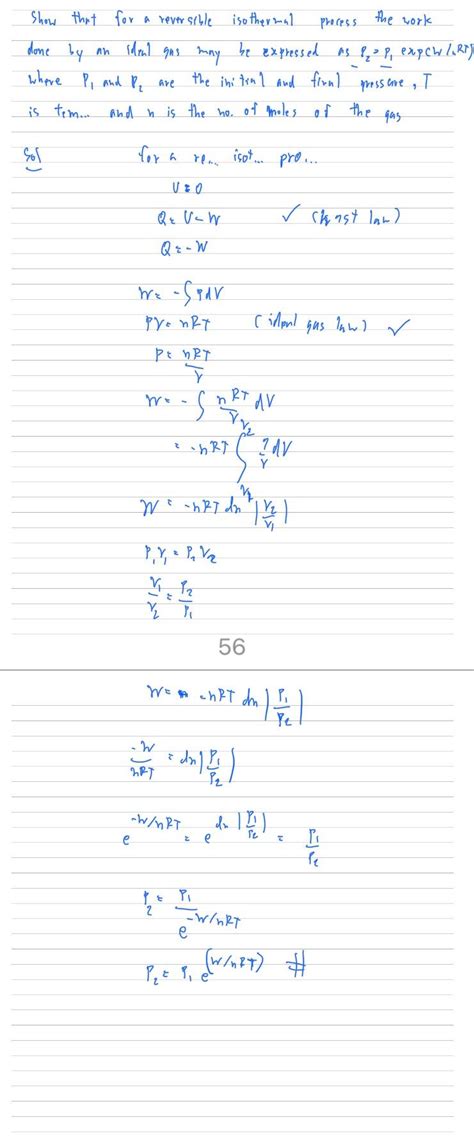 Show that for a reversible isothermal process the work
done by an ideal gas may be expressed as P₂ = P₁ exp(W/nRT)
where P₁ and P₂ are the initial and final pressure, T
is tem... and n is the no. of moles of the gas
Sol for a re... isot... pro...
U = 0
Q = U - W ✓ (first law)
Q = -W
W = -∫PdV
PV = nRT (ideal gas law) ✓
P = nRT/V
W = -∫ nRT/V dV
= -nRT ∫ 1/V dV V₂ V₁
W = -nRT ln |V₂/V₁|
P₁V₁ = P₂V₂
V₁/V₂ = P₂/P₁
56
W = -nRT ln |P₁/P₂|
-W/nRT = ln |P₁/P₂|
e^(-W/nRT) = e^(ln |P₁/P₂|) = P₁/P₂
P₂ = P₁/e^(-W/nRT)
P₂ = P₁ e^(W/nRT) #